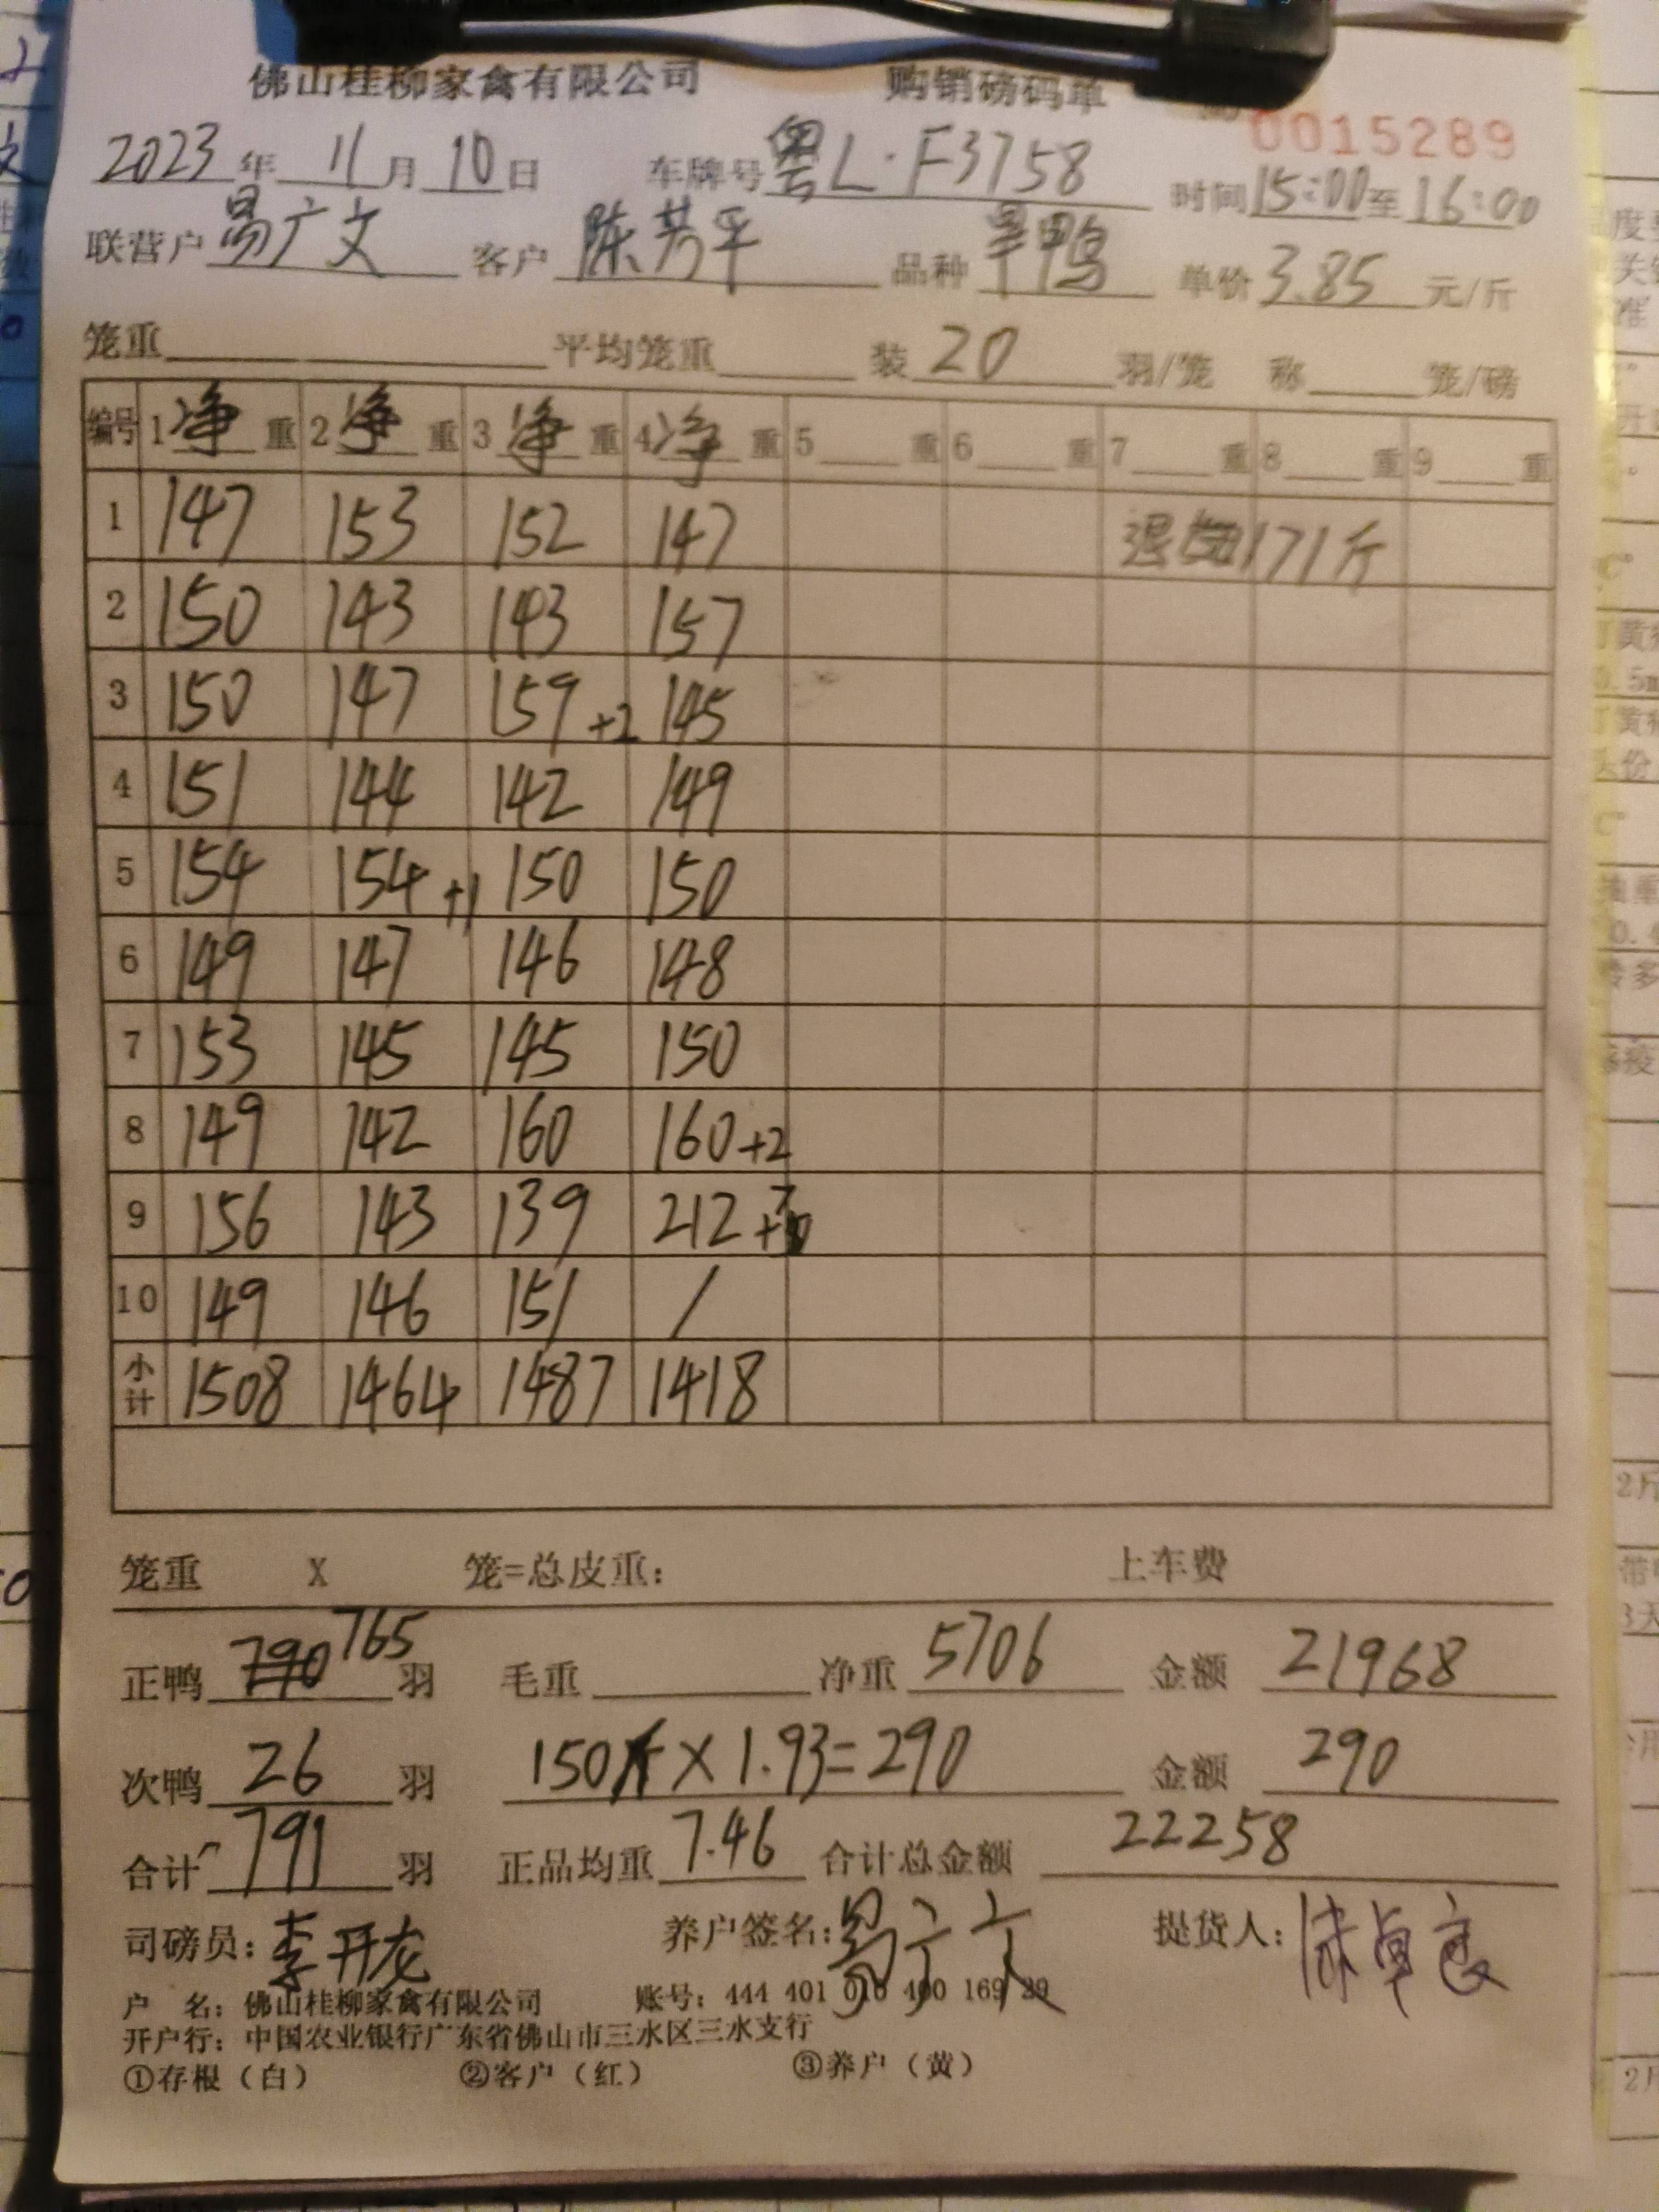 佛山桂柳家禽有限公司 购销磅码单 0015289
2023年 11月 10日 车牌号 粤L·F3758 时间 15:00至16:00
联营户 易广文 客户 陈芳平 品种 旱鸭 单价 3.85 元/斤
笼重 平均笼重 装 20 羽/笼 称 笼/磅
编号 1净重 2净重 3净重 4净重 5 重 6 重 7 重 8 重 9 重
1 147 153 152 147 171斤
2 150 143 143 157
3 150 147 159+2 145
4 151 144 142 149
5 154 154+1 150 150
6 149 147 146 148
7 153 145 145 150
8 149 142 160 160+2
9 156 143 139 212
10 149 146 151 /
小计 1508 1464 1487 1418
笼重 X 笼=总皮重: 上车费
正鸭 790 765 羽 毛重 净重 5706 金额 21968
次鸭 26 羽 150斤×1.93=290 金额 290
合计 791 羽 正品均重 7.46 合计总金额 22258
司磅员: 李开龙 养户签名: 易广文 提货人:
户 名: 佛山桂柳家禽有限公司 账号: 444 401 010 400 169 29
开户行: 中国农业银行广东省佛山市三水区三水支行
①存根（白） ②客户（红） ③养户（黄）